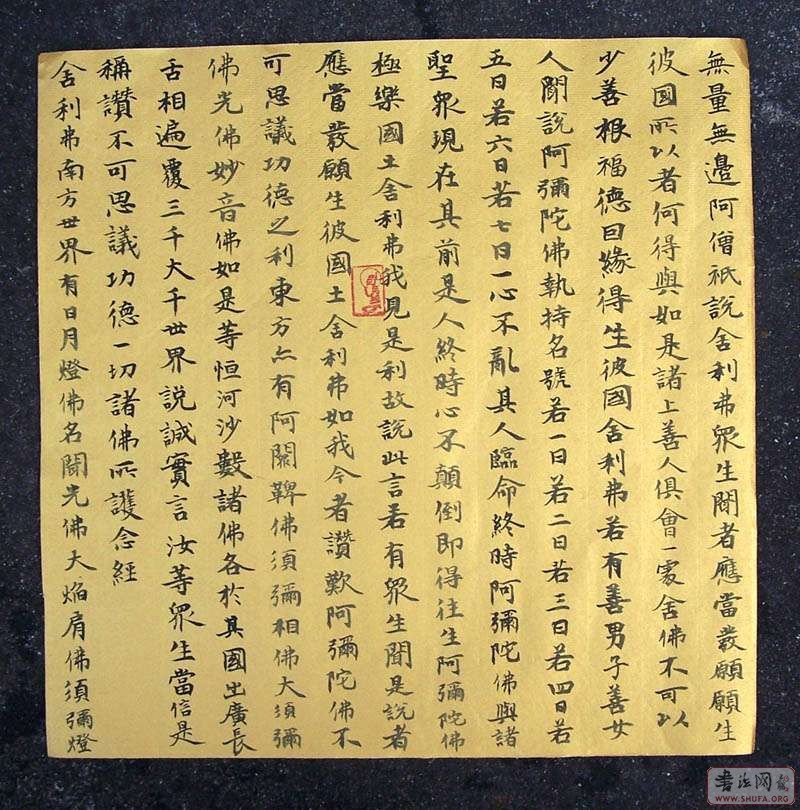 無量無邊阿僧祇說舍利弗眾生聞者應當發願願生
彼國所以者何得與如是諸上善人俱會一處舍佛不可以
少善根福德因緣得生彼國舍利弗若有善男子善女
人聞說阿彌陀佛執持名號若一日若二日若三日若四日若
五日若六日若七日一心不亂其人臨命終時阿彌陀佛與諸
聖眾現在其前是人終時心不顛倒即得往生阿彌陀佛
極樂國土舍利弗我見是利故說此言若有眾生聞是說者
應當發願生彼國土舍利弗如我今者讚歎阿彌陀佛不
可思議功德之利東方亦有阿閦鞞佛須彌相佛大須彌
佛光佛妙音佛如是等恒河沙數諸佛各於其國出廣長
舌相遍覆三千大千世界說誠實言汝等眾生當信是
稱讚不可思議功德一切諸佛所護念經
舍利弗南方世界有日月燈佛名聞光佛大焰肩佛須彌燈
书法网
WWW.SHUFA.ORG